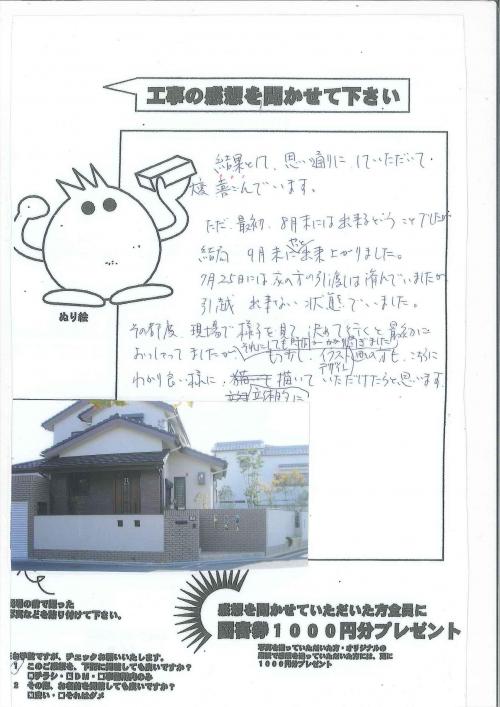 工事の感想を聞かせて下さい
結果として、思い通りに、していただいて、
大変喜こんでいます。
ただ、最初、8月末には出来るということでしたが
結局 9月末にやっと出来上がりました。
7月25日には次の方の引渡しは済んでいましたが
引越 出来ない 状態でいました。
その都度、現場で様子を見て決めて行くと最初に
それにしても時間がかかり過ぎました
おっしゃってましたが もう少し、イラスト画のオモ、こちらに
デザイン
わかり良い様に 描いていただけたらと思います。
立体的に
ぬり絵
の前で撮った
写真などを貼り付けて下さい。
感想を聞かせていただいた方全員に
図書券1000円分プレゼント
1000円分プレゼント
お手数ですが、チェックお願いいたします。
1 このご感想を、下記に掲載しても良いですか?
□チラシ・□DM・□事務所内のみ
2 その他、お名前を掲載しても良いですか?
□良い・□それはダメ